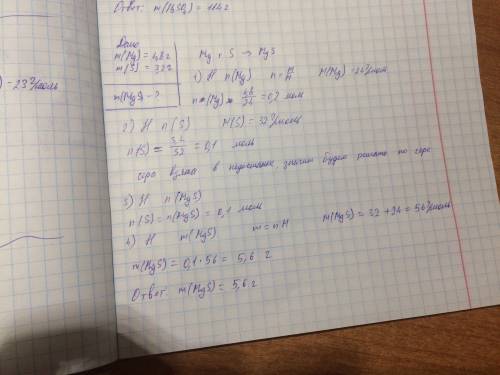 Ответ: m(H₂SO₄) = 114 г
) = 23 г/моль
Дано
m(Mg) = 4,8 г
m(S) = 3,2 г
m(MgS) - ?
Mg + S → MgS
1) Н n(Mg) n = m/M M(Mg) = 24 г/моль
n(Mg) = 4,8/24 = 0,2 моль
2) Н n(S) M(S) = 32 г/моль
n(S) = 3,2/32 = 0,1 моль
сера взята в недостатке, значит будем решать по сере
3) Н n(MgS)
n(S) = n(MgS) = 0,1 моль
4) Н m(MgS) m = n·M M(MgS) = 32 + 24 = 56 г/моль
m(MgS) = 0,1 · 56 = 5,6 г
Ответ: m(MgS) = 5,6 г